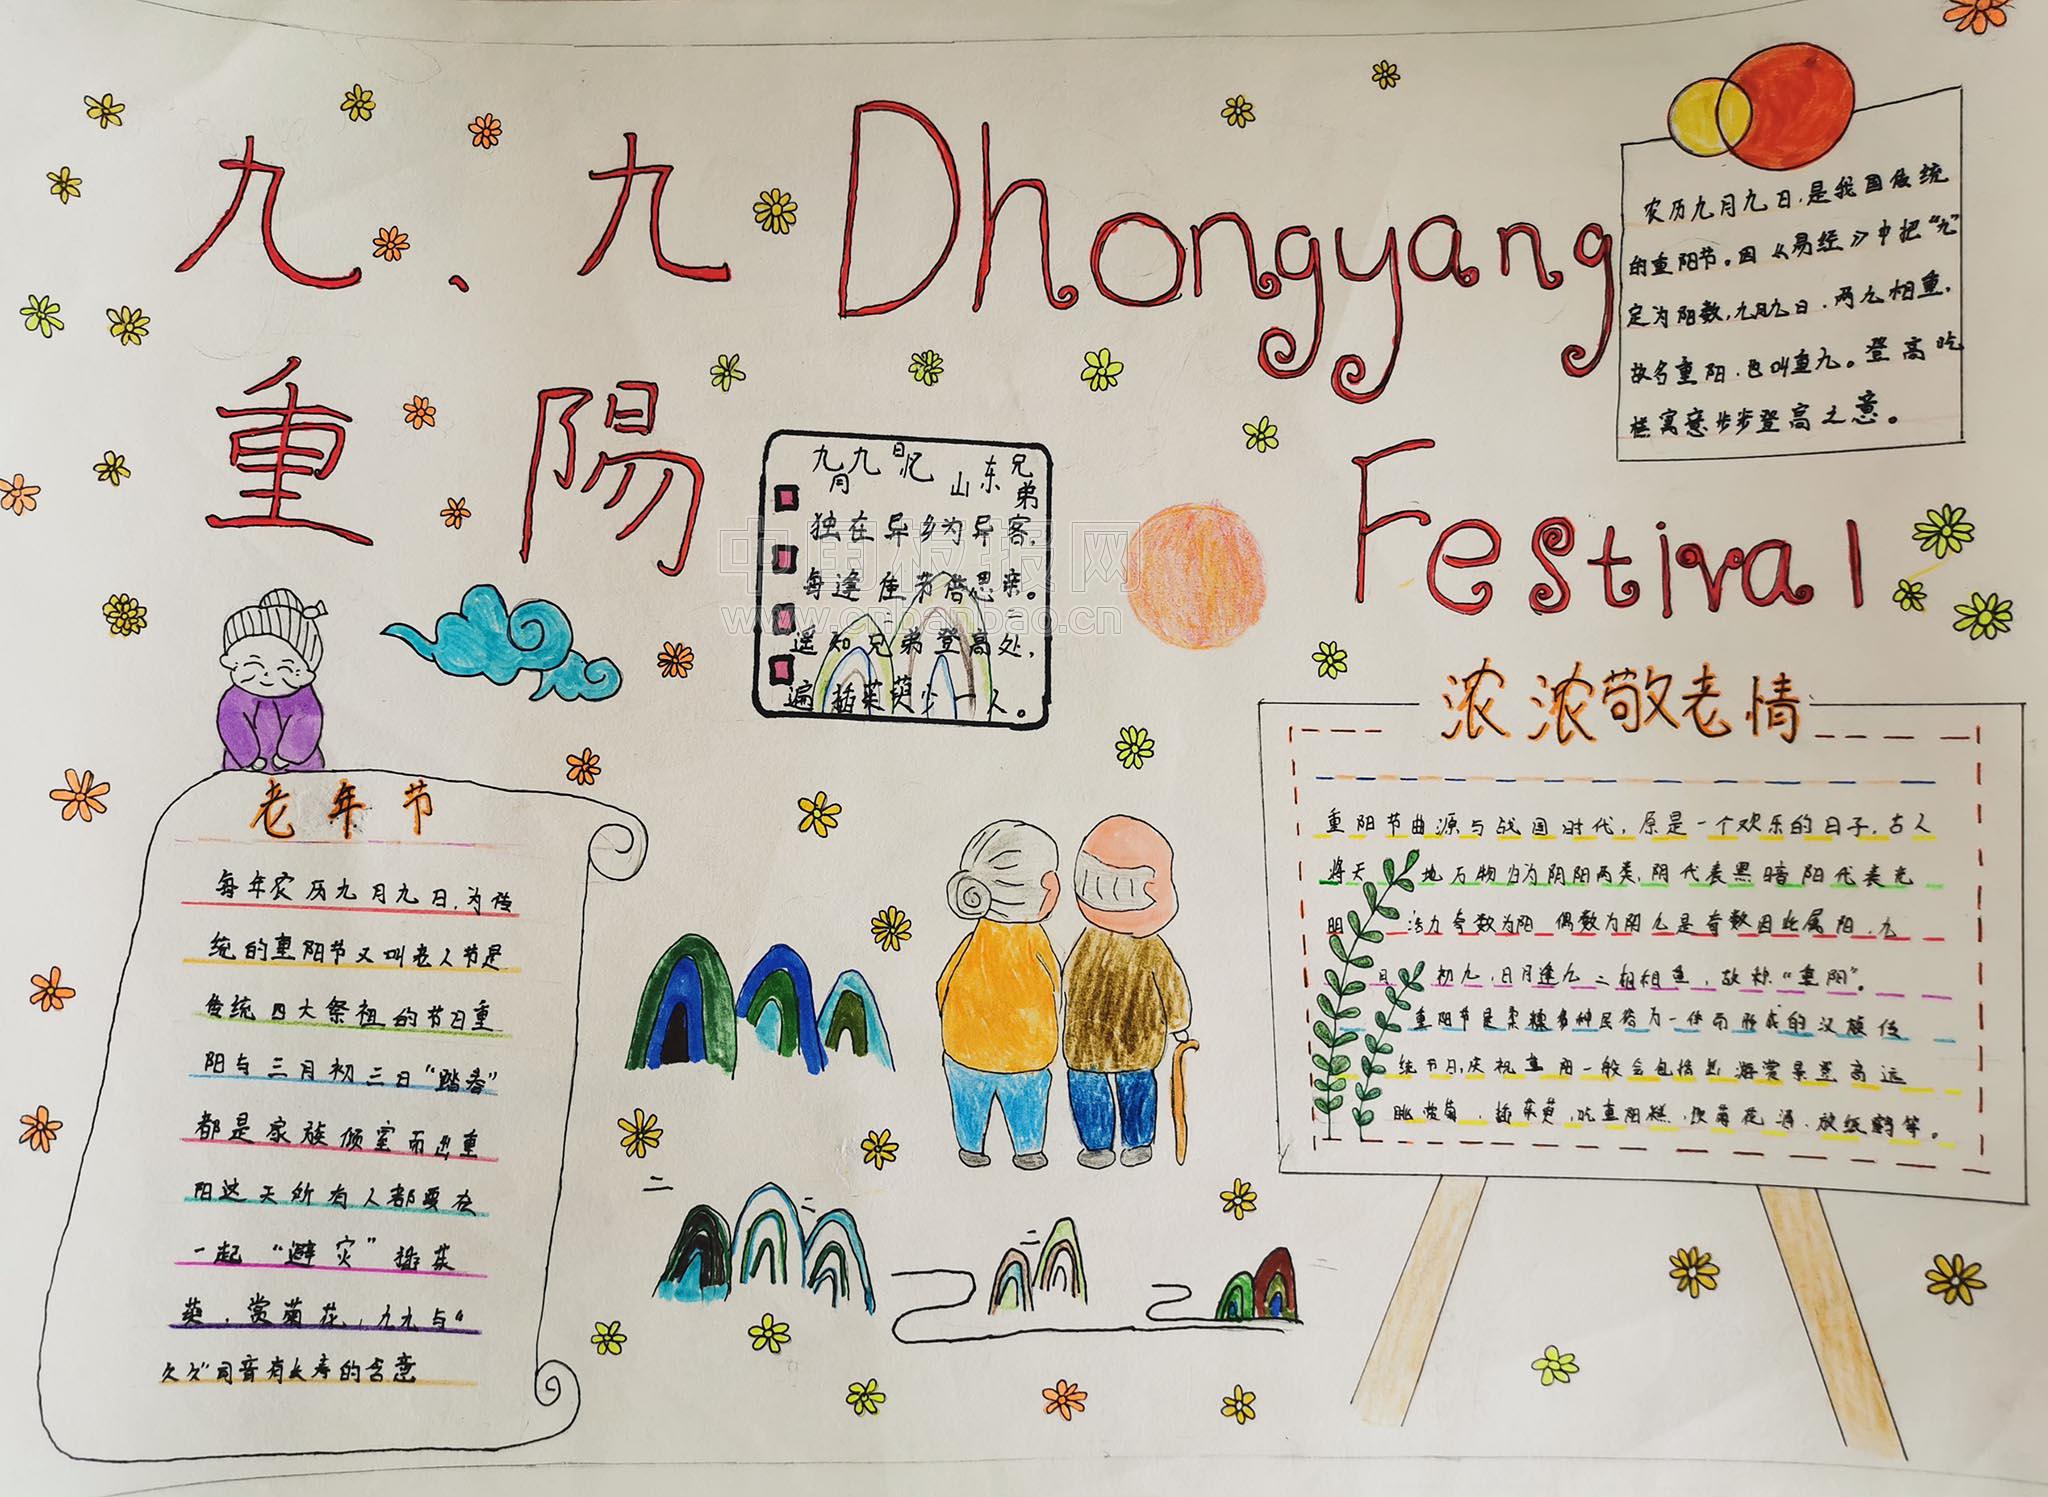 九、九
重陽
Dhongyang
Festival
农历九月九日,是我国传统
的重阳节。因《易经》中把“九”
定为阳数,九月九日,两九相重,
故名重阳,也叫重九。登高吃
糕寓意步步登高之意。
九月九日忆山东兄弟
独在异乡为异客,
每逢佳节倍思亲。
遥知兄弟登高处,
遍插茱萸少一人。
中国板报网
www.cnbanbao.cn
老年节
每年农历九月九日,为传
统的重阳节又叫老人节是
传统四大祭祖的节日重
阳与三月初三日“踏春”
都是家族倾室而出重
阳这天所有人都要在
一起“避灾”插茱
萸,赏菊花,九九与“
久久”同音有长寿的含意
浓浓敬老情
重阳节曲源与战国时代,原是一个欢乐的日子,古人
将天地万物分为阴阳两类,阴代表黑暗阳代表光
明 活力奇数为阳 偶数为阴九是奇数因此属阳,九
日 初九,日月逢九二相相重,故称“重阳”。
重阳节是柔糠多种民俗为一体而形成的汉族传
统节日,庆祝重阳一般会包括出游赏景登高远
眺赏菊,插茱萸,吃重阳糕,饮菊花酒,放纸鹞等。